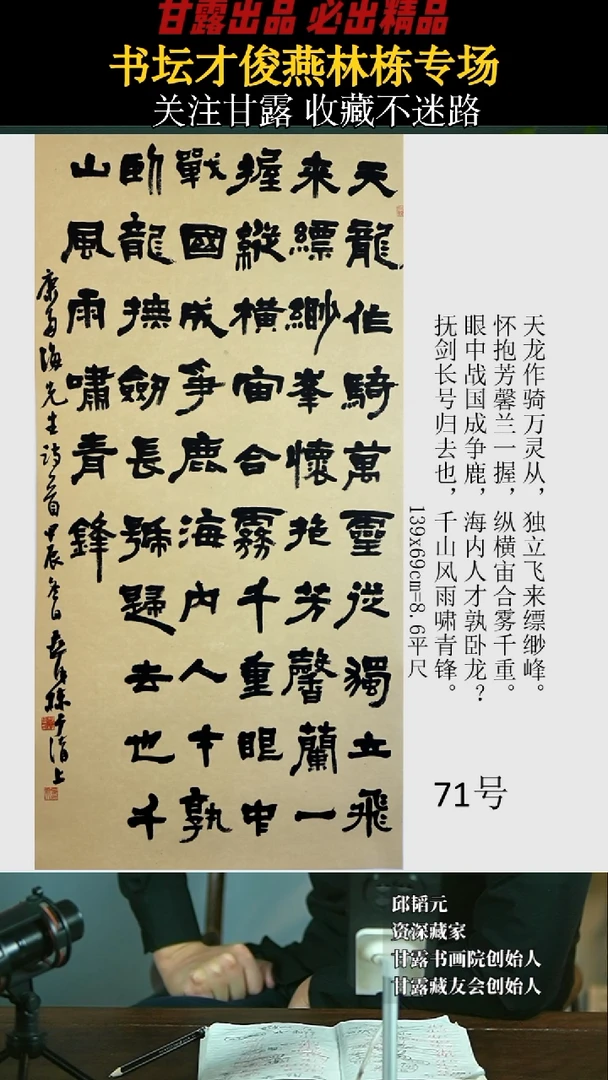 甘露出品 必出精品
书坛才俊燕林栋专场
关注甘露 收藏不迷路
天龍作騎萬靈從獨立飛
來縹緲峯懷抱芳馨蘭一
握縱橫宙合霧千重眼中
戰國成爭鹿海內人才孰
臥龍撫劒長號歸去也千
山風雨嘯青鋒
康南海先生詩一首 甲辰冬日 燕林栋于渭上
天龙作骑万灵从，独立飞来缥缈峰。
怀抱芳馨兰一握，纵横宙合雾千重。
眼中战国成争鹿，海内人才孰卧龙？
抚剑长号归去也，千山风雨啸青锋。
139x69cm=8.6平尺
71号
邱韬元
资深藏家
甘露书画院创始人
甘露藏友会创始人